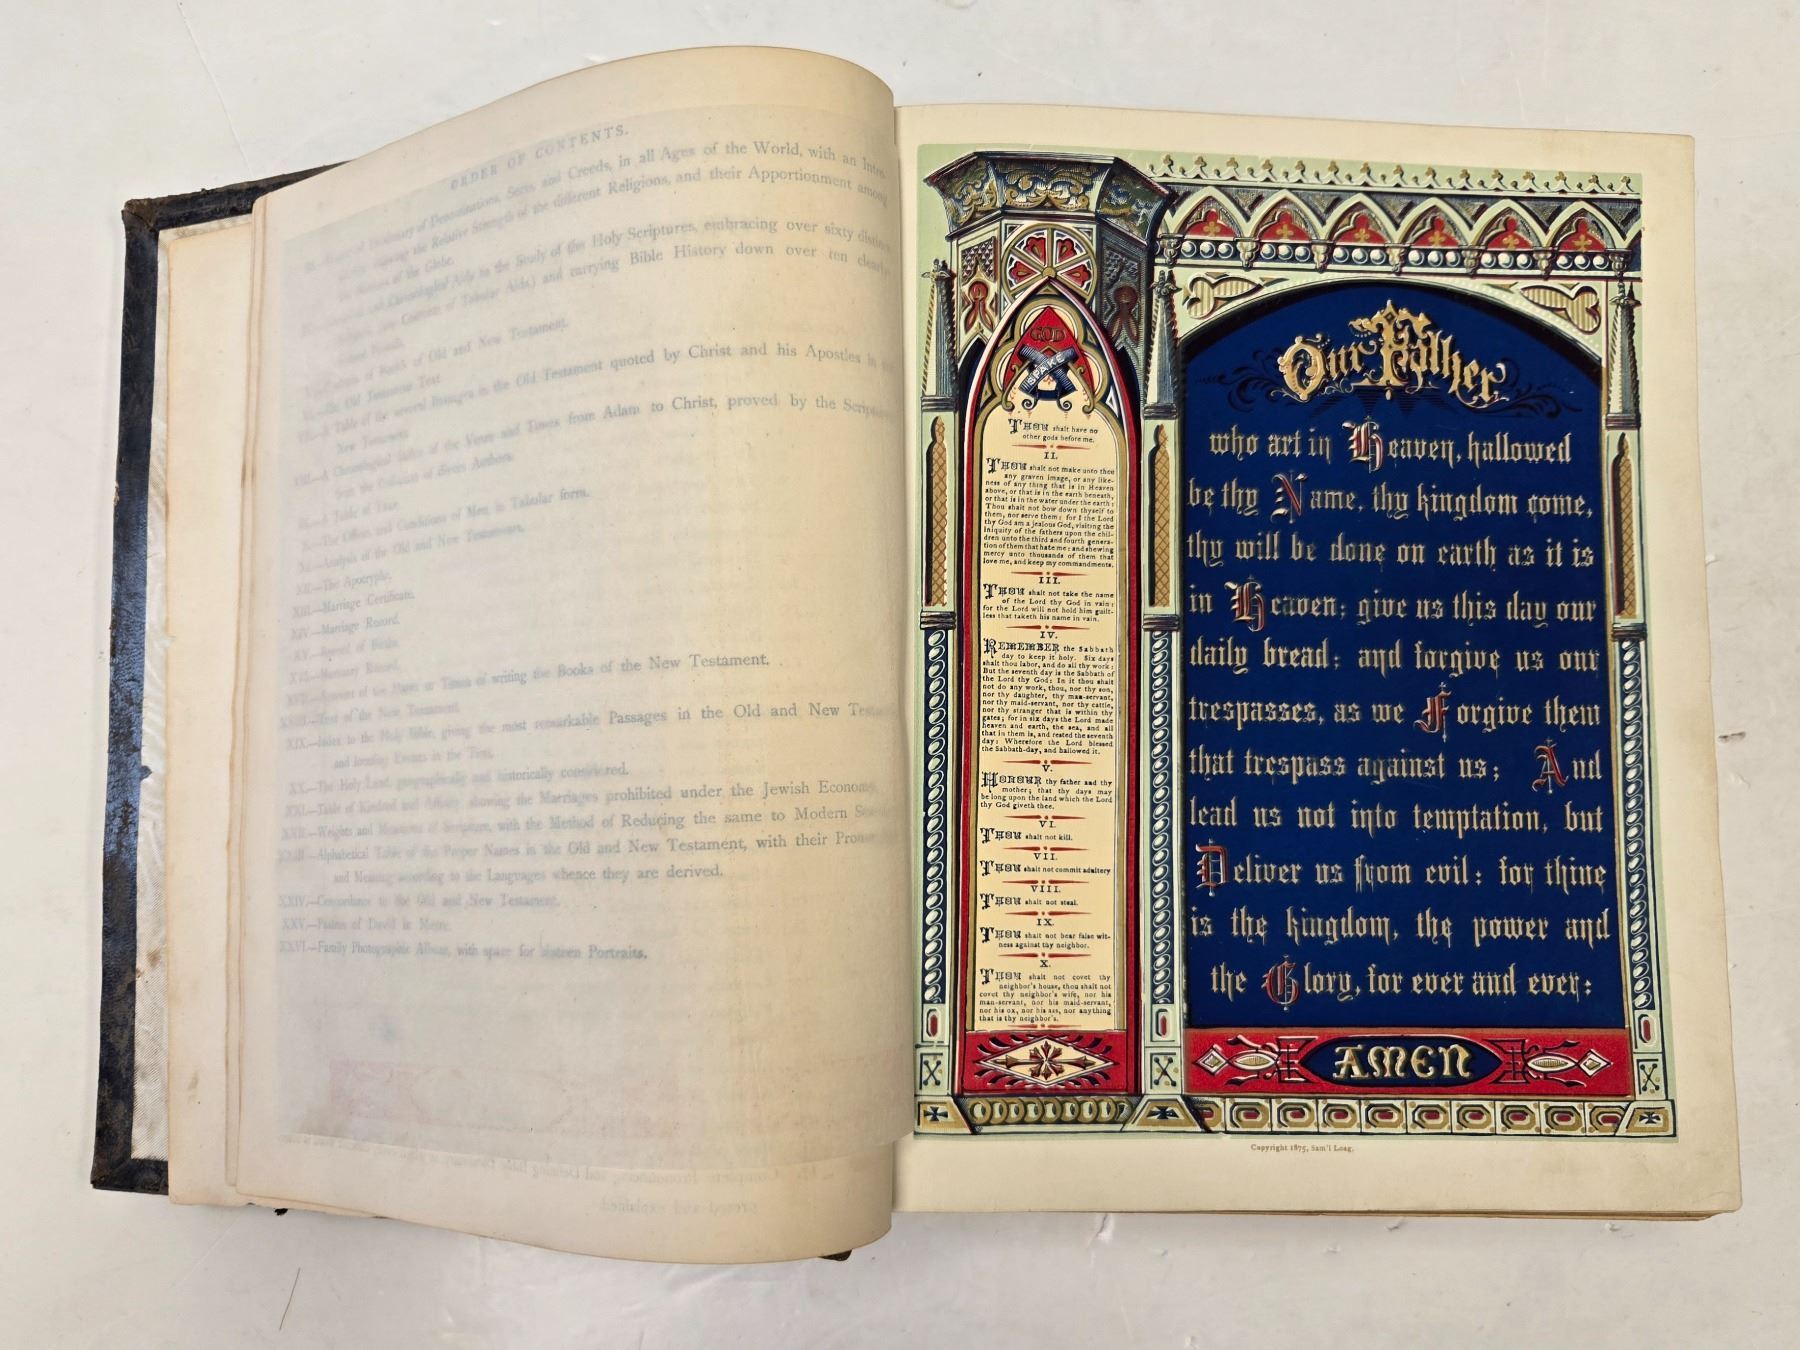 ORDER OF CONTENTS.
Dictionary of Denominations, Sects, and Creeds, in all Ages of the World, with an Intro-
showing the Relative Strength of the different Religions, and their Apportionment among
the Nations of the Globe.
and Chronological Aids to the Study of the Holy Scriptures, embracing over sixty distinct
Contents of Tabular Aids,) and carrying Bible History down over ten clearly
Periods.
of Old and New Testament.
Old Testament Text.
VII.—A Table of the several Passages in the Old Testament quoted by Christ and his Apostles in
New Testament.
VIII.—A Chronological Index of the Years and Times from Adam to Christ, proved by the Scriptures
from the Collection of divers Authors.
A Table of Time.
X.—The Offices and Conditions of Men, in Tabular form.
XI.—Analysis of the Old and New Testaments.
XII.—The Apocrypha.
XIII.—Marriage Certificate.
XIV.—Marriage Record.
XV.—Record of Births.
XVI.—Record.
XVII.—Account of the Dates or Times of writing the Books of the New Testament.
XVIII.—Text of the New Testament.
XIX.—Index to the Holy Bible, giving the most remarkable Passages in the Old and New
and locating Events in the Text.
XX.—The Holy Land, geographically and historically considered.
XXI.—Table of Kindred and Affinity, showing the Marriages prohibited under the Jewish Economy
XXII.—Weights and Measures of Scripture, with the Method of Reducing the same to Modern
XXIII.—Alphabetical Table of the Proper Names in the Old and New Testament, with their
and Meaning according to the Languages whence they are derived.
XXIV.—Concordance to the Old and New Testament.
XXV.—Psalms of David in Metre.
XXVI.—Family Photographic Album, with space for sixteen Portraits.
GOD
SPAKE
THOU shalt have no
other gods before me.
II.
THOU shalt not make unto thee
any graven image, or any like-
ness of any thing that is in Heaven
above, or that is in the earth beneath,
or that is in the water under the earth:
Thou shalt not bow down thyself to
them, nor serve them: for I the Lord
thy God am a jealous God, visiting the
iniquity of the fathers upon the chil-
dren unto the third and fourth genera-
tion of them that hate me: and shewing
mercy unto thousands of them that
love me, and keep my commandments.
III.
THOU shalt not take the name
of the Lord thy God in vain:
for the Lord will not hold him guilt-
less that taketh his name in vain.
IV.
REMEMBER the Sabbath
day to keep it holy. Six days
shalt thou labor, and do all thy work:
But the seventh day is the Sabbath of
the Lord thy God: In it thou shalt
not do any work, thou, nor thy son,
nor thy daughter, thy man-servant,
nor thy maid-servant, nor thy cattle,
nor thy stranger that is within thy
gates; for in six days the Lord made
heaven and earth, the sea, and all
that in them is, and rested the seventh
day: Wherefore the Lord blessed
the Sabbath-day, and hallowed it.
V.
HONOUR thy father and thy
mother; that thy days may
be long upon the land which the Lord
thy God giveth thee.
VI.
THOU shalt not kill.
VII.
THOU shalt not commit adultery
VIII.
THOU shalt not steal.
IX.
THOU shalt not bear false wit-
ness against thy neighbor.
X.
THOU shalt not covet thy
neighbor's house, thou shalt not
covet thy neighbor's wife, nor his
man-servant, nor his maid-servant,
nor his ox, nor his ass, nor anything
that is thy neighbor's.
Our Father
who art in Heaven, hallowed
be thy Name, thy kingdom come,
thy will be done on earth as it is
in Heaven; give us this day our
daily bread; and forgive us our
trespasses, as we Forgive them
that trespass against us; And
lead us not into temptation, but
Deliver us from evil: for thine
is the kingdom, the power and
the Glory, for ever and ever:
AMEN
Copyright 1875, Sam'l Loag.